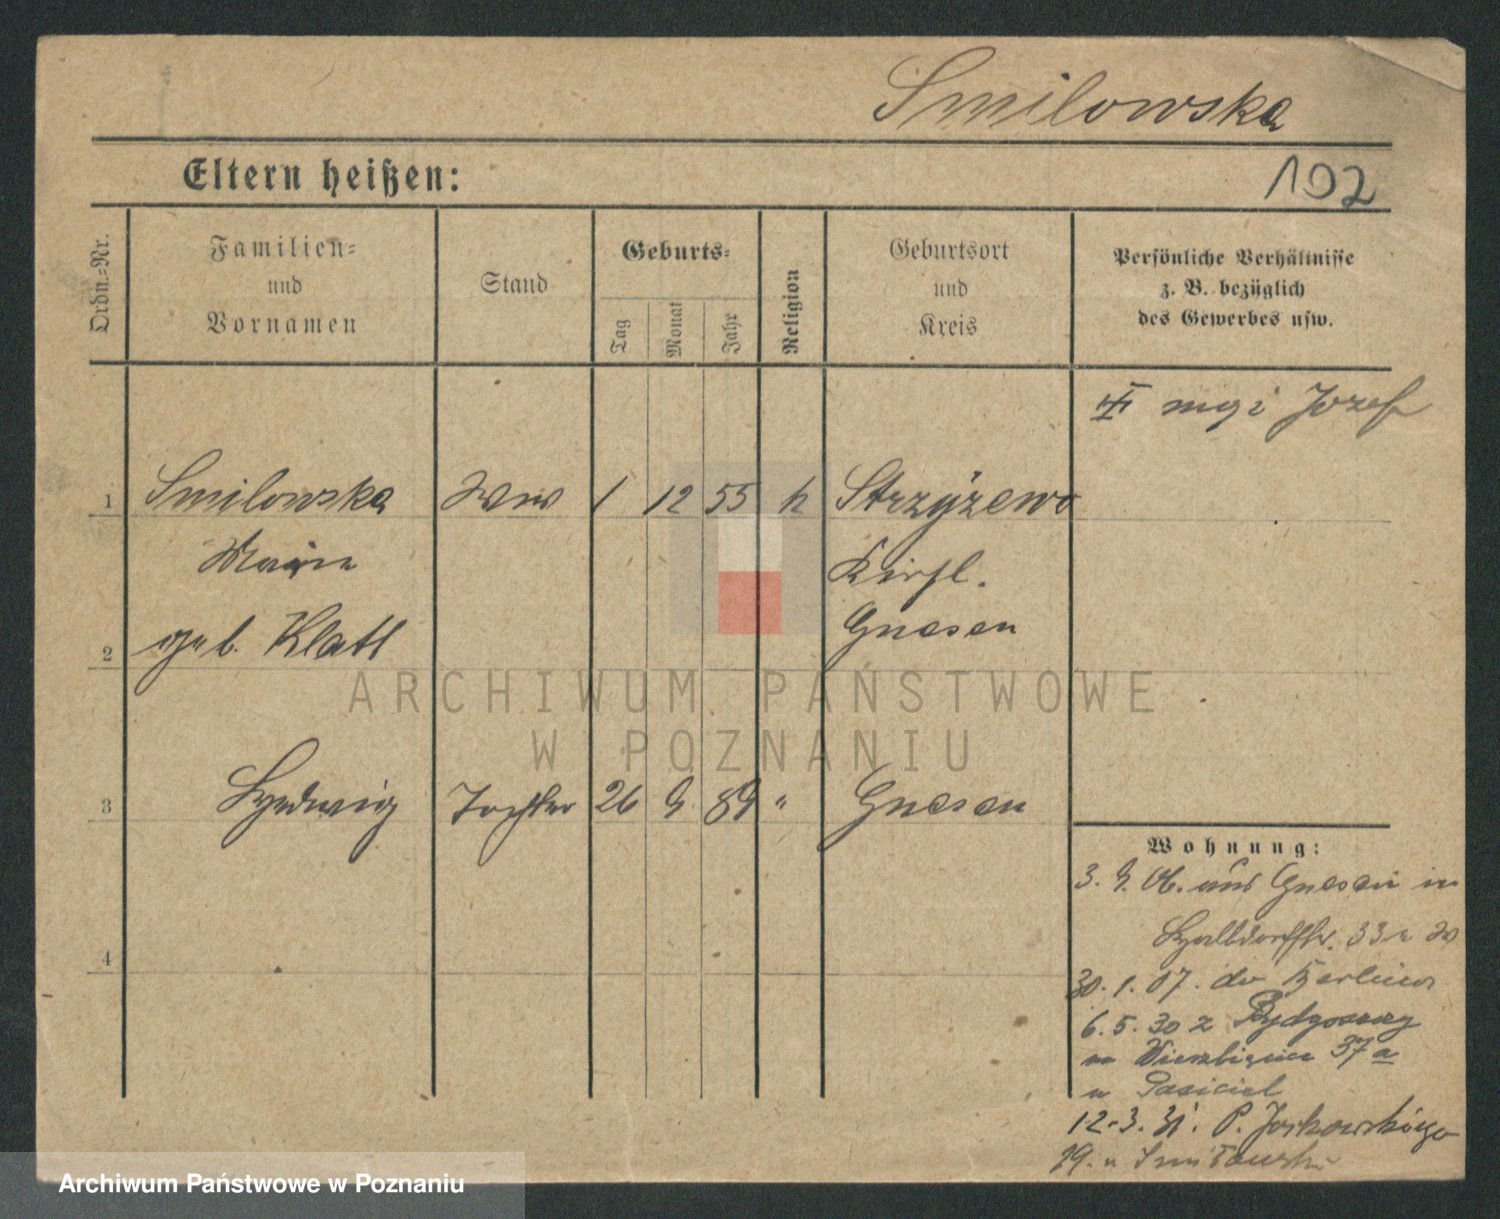 Smilowska
Eltern heißen:
102
Ordn.-Nr.
Familien-
und
Vornamen
Stand
Geburts-
Tag
Monat
Jahr
Religion
Geburtsort
und
Kreis
Persönliche Verhältnisse
z. B. bezüglich
des Gewerbes usw.
mąż Jozef
1 Smilowska 1 12 55 k Strzyżewo
Kirchl.
2 geb. Klatt Gnesen
3 Hedwig Tochter 26 9 89 " Gnesen
4
Wohnung:
3. 9. 06. aus Gnesen in
33
30. 1. 07. Berliner
6. 5. 30 z Bydgoszcz
Wierzbięcice 37a
u Pasiciel
12.3.31. P. Jackowskiego
29. u Smiłowski
ARCHIWUM PAŃSTWOWE
W POZNANIU
Archiwum Państwowe w Poznaniu